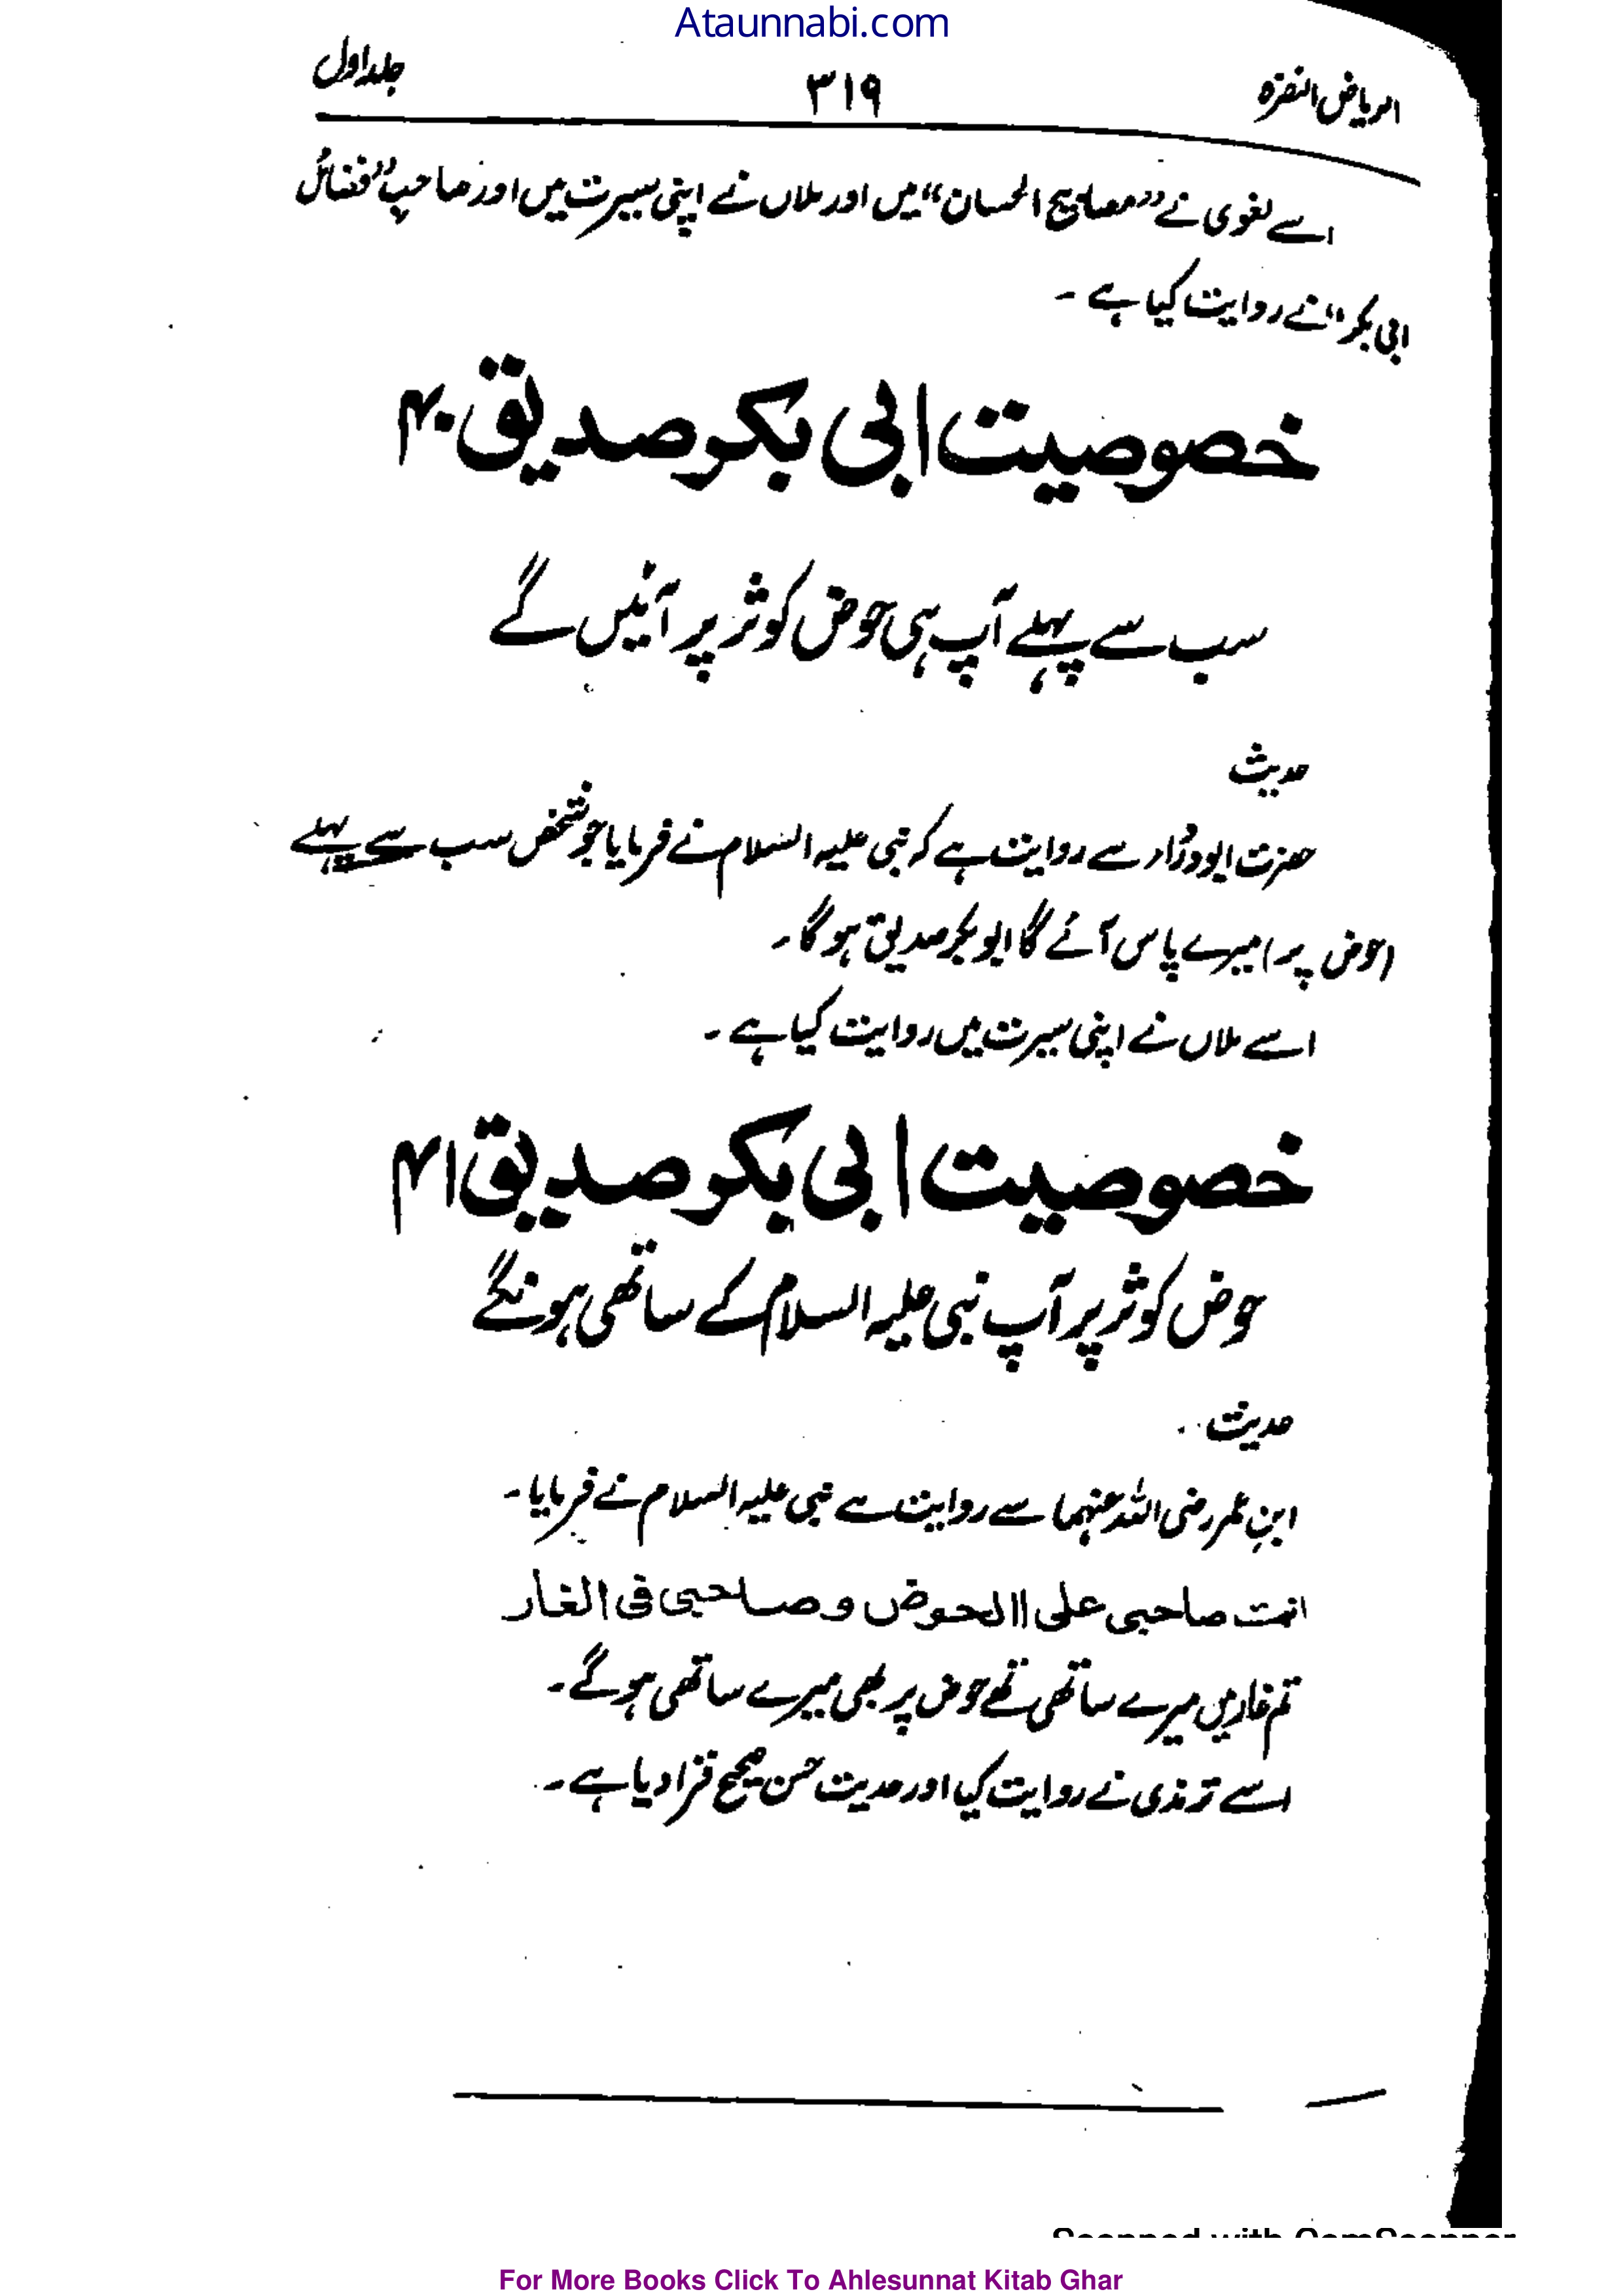 Ataunnabi.com
الریاض النضرہ ۳۱۹ جلد اول
اسے بغوی نے ”مصابیح الحسان“ میں اور ملاں نے اپنی سیرت میں اور صاحب ”فضائل
ابی بکر“ نے روایت کیا ہے ۔
خصوصیت ابی بکر صدیق ۴۰
سب سے پہلے آپ ہی حوض کوثر پر آئیں گے
حدیث
حضرت ابودرداء سے روایت ہے کہ نبی علیہ السلام نے فرمایا جو شخص سب سے پہلے
(حوض پر) میرے پاس آئے گا ابوبکر صدیق ہوگا ۔
اسے ملاں نے اپنی سیرت میں روایت کیا ہے ۔
خصوصیت ابی بکر صدیق ۴۱
حوض کوثر پر آپ نبی علیہ السلام کے ساتھی ہونگے
حدیث
ابنِ عمر رضی اللہ عنہما سے روایت ہے نبی علیہ السلام نے فرمایا ۔
انت صاحبی علی االحوض و صاحبی فی الغار
تم غار میں میرے ساتھی تھے حوض پر بھی میرے ساتھی ہوگے ۔
اسے ترمذی نے روایت کیا اور حدیث حسن صحیح قرار دیا ہے ۔
Scanned with CamScanner
For More Books Click To Ahlesunnat Kitab Ghar